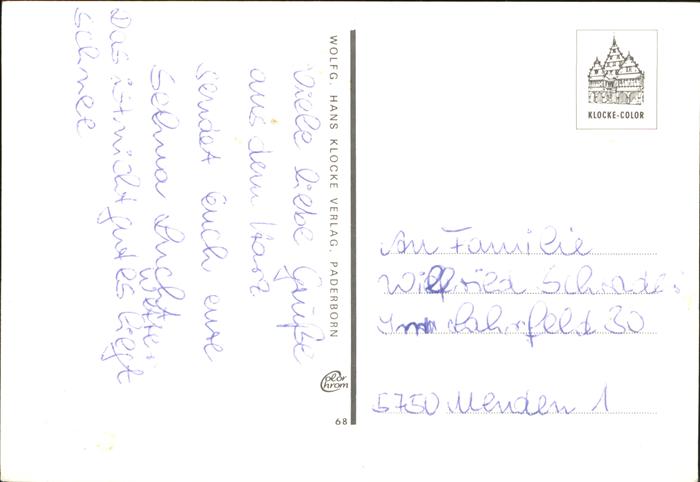 Viele liebe Grüße
aus dem Harz
sendet Euch eure
Selma
Das ist nicht gut es liegt
schnee
WOLFG. HANS KLOCKE VERLAG, PADERBORN
Color
Chrom
68
KLOCKE-COLOR
An Familie
Wilfried Schrader
Im Lahrfeld 30
5750 Menden 1